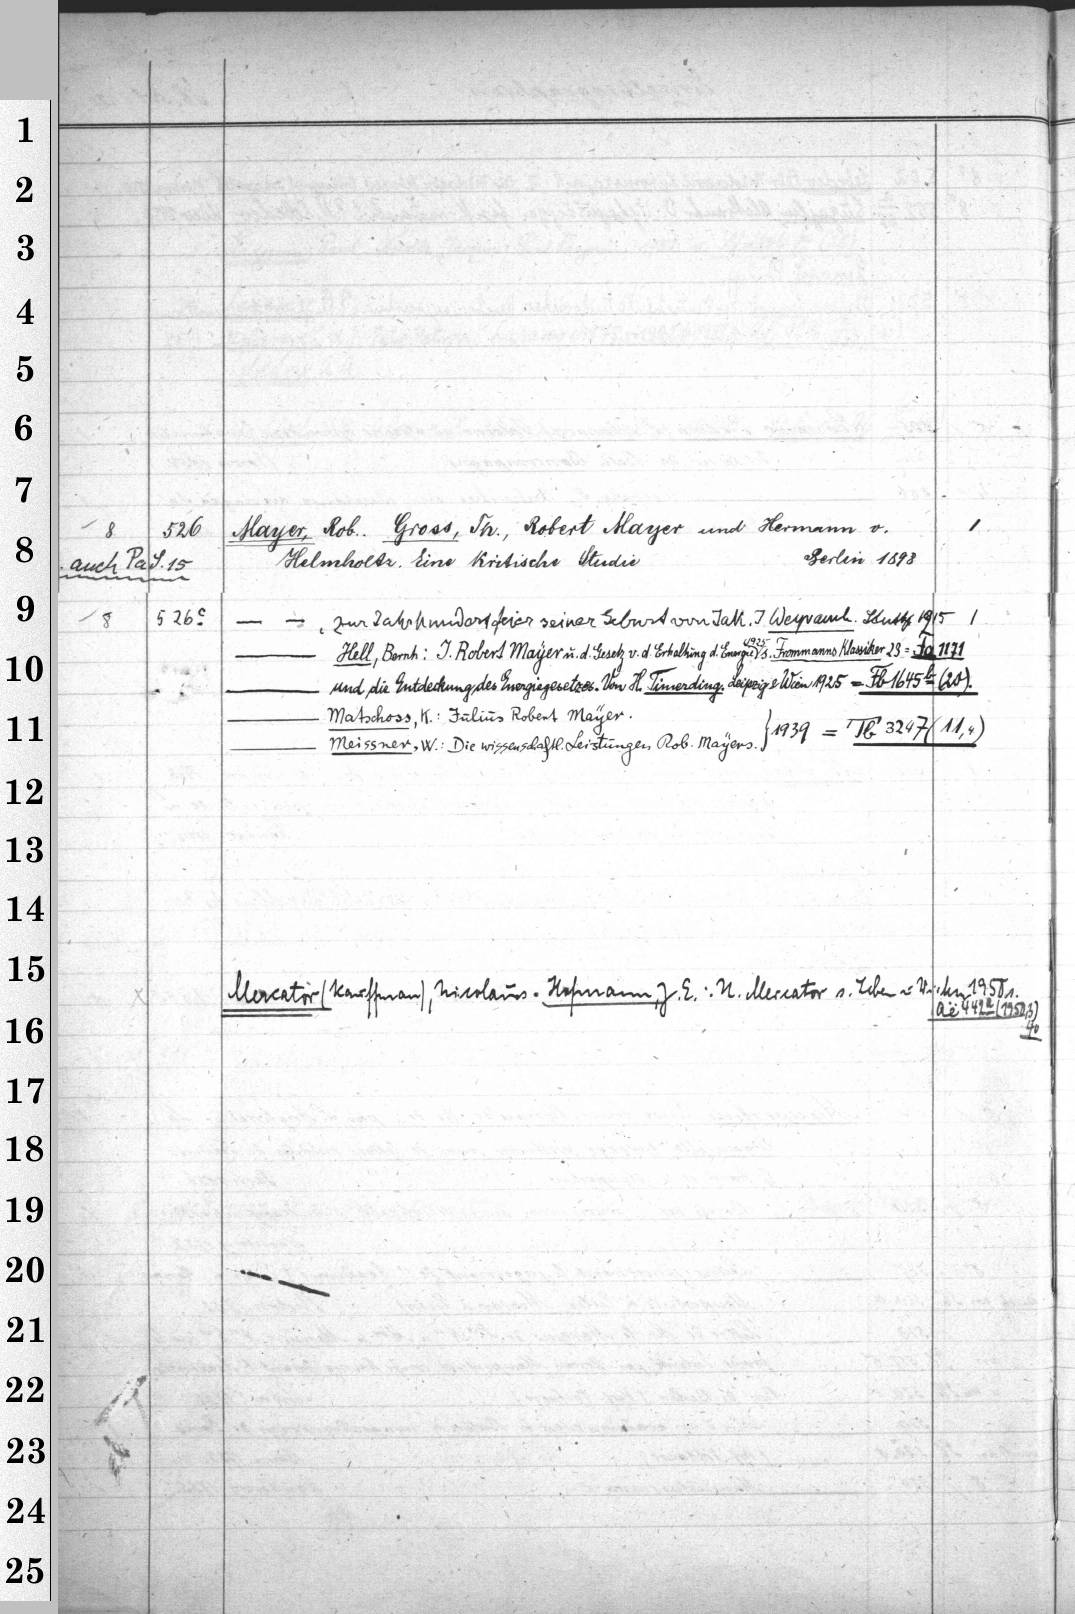 1
2
3
4
5
6
7
8 526 Mayer, Rob.. Gross, Th., Robert Mayer und Hermann v. 1
8
auch Pa S. 15 Helmholtz. Eine kritische Studie Berlin 1898
9
8 526c — — , zur Jahrhundertfeier seiner Geburt von Jak. J Weyrauch. Stuttg 1915 1
Hell, Bernh: J. Robert Mayer u. d. Gesetz v. d. Erhaltung d. Energie 1925 s. Frommanns Klassiker 23 = Fa 1171
10
und die Entdeckung des Energiegesetzes. Von H. Timerding. Leipzig & Wien 1925 = Fb 1645 (20).
Matschoss, K.: Julius Robert Mayer.
11
Meissner, W.: Die wissenschaftl. Leistungen Rob. Mayers. } 1939 = Tb 3247 (11,4)
12
13
14
15
Mercator (Kauffman), Nicolaus. Hofmann, J. E.: N. Mercator s. Leben u. Wirken 1950 s.
Aë 442a (1950,3)
16
40
17
18
19
20
21
22
23
24
25